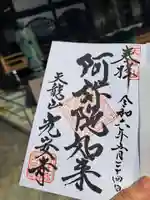 奉拝
令和二年六月二十四日
阿弥陀如来
天龍山
光安寺